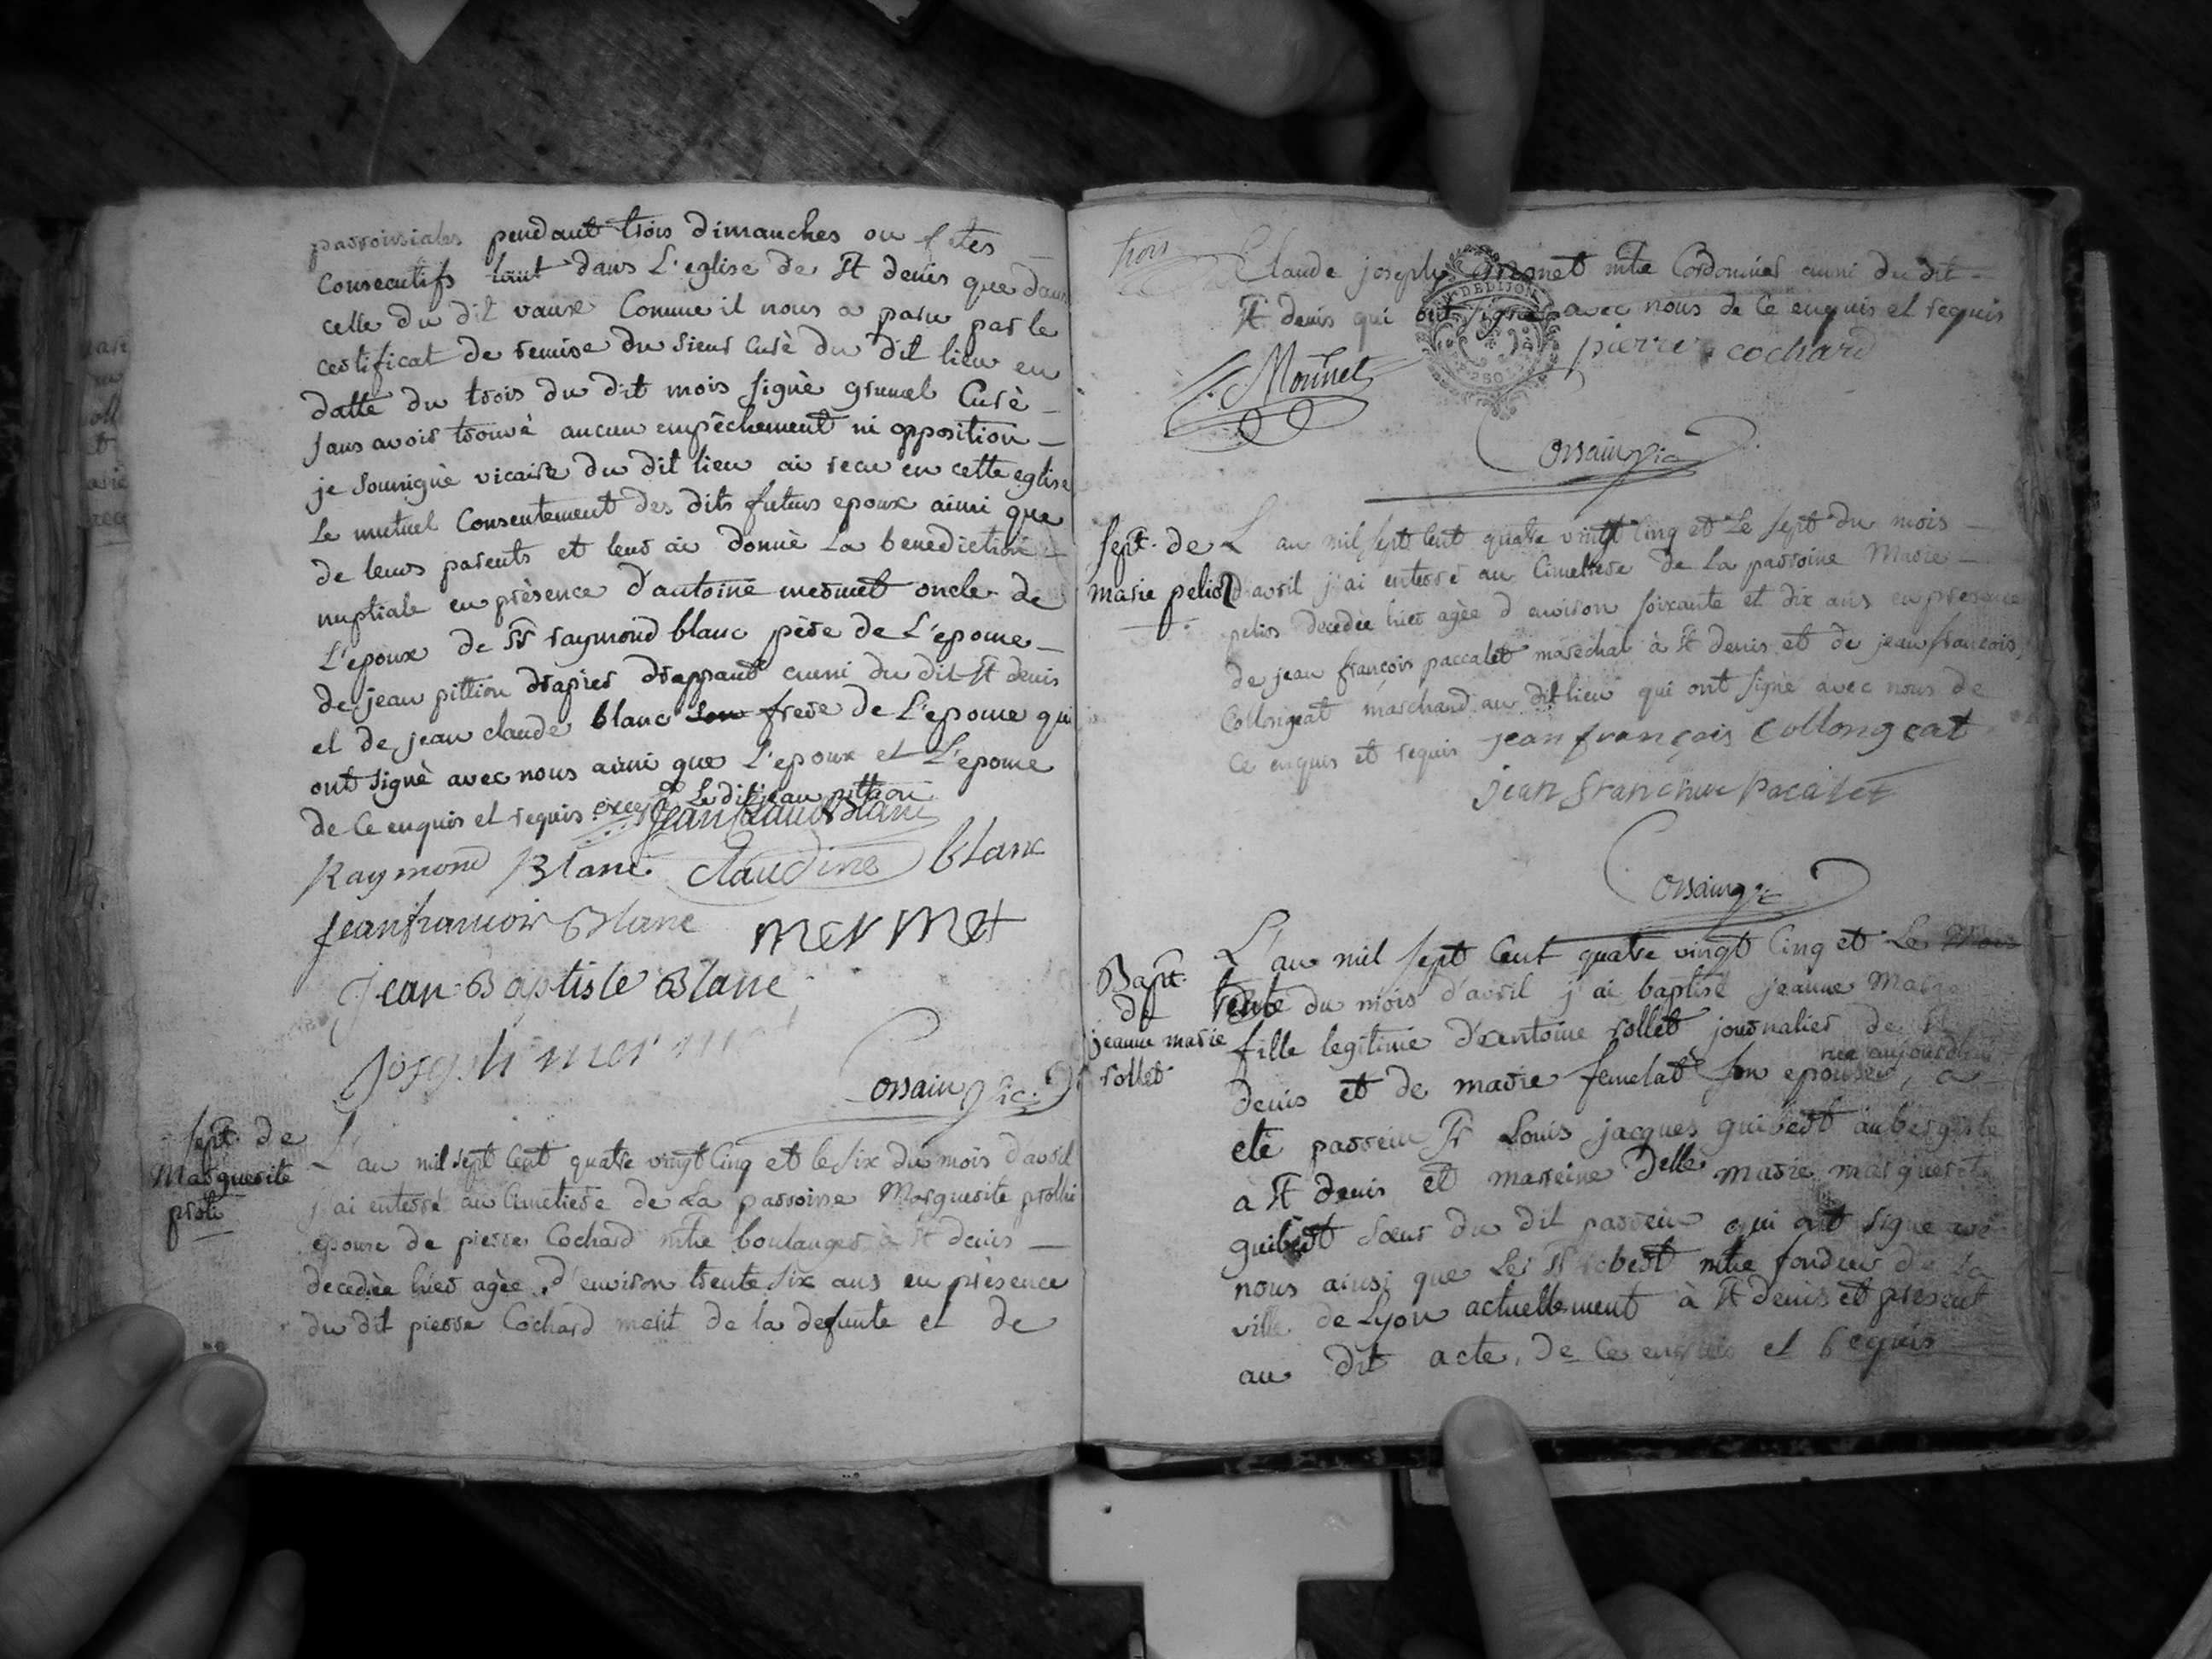 parroissiales pendant trois dimanches ou fetes
Consecutifs tant dans L'eglise de St denis que dans
celle du dit vaux Comme il nous a paru par le
certificat de remise du sieur curè du dit lieu en
datte du trois du dit mois signè grumel Curè
sans avoir trouvè aucun empêchement ni opposition
je soussignè vicaire du dit lieu ai recu en cette eglise
Le mutuel Consentement des dits futurs epoux ainsi que
de leurs parents et leur ai donnè La benediction
nuptiale en prèsence d'antoine mermet oncle de
L'epoux de Sr raymond blanc père de L'epouse
de jean pittion drapier drappant aussi du dit St denis
et de jean claude blanc son frere de L'epouse qui
ont signè avec nous ainsi que L'epoux et L'epouse
de Ce enquis et requis exceptè Le dit jean pittion
jean claude blanc
Raymond Blanc Claudine blanc
jean francois Blanc mermet
jean Baptiste Blanc
Joseph mermet
Corsain vic.
sept. de
Marguerite
proli
L'an mil sept Cent quatre vingt Cinq et le six du mois d'avril
j'ai enterré au Cimetiere de La parroisse Marguerite prolli
epouse de pierre Cochard mtre boulanger à St denis
decedèe hier agèe d'environ trente six ans en prèsence
du dit pierre Cochard marit de la defunte et de
trois
Claude joseph monnet mtre Cordonnier aussi du dit
St denis qui ont signé avec nous de Ce enquis et requis
C. Monnet pierre cochard
DEDIJON
Corsain vic
sept. de
marie pelior
L'an mil sept Cent quatre vingt Cinq et Le sept du mois
d'avril j'ai enterré au Cimetiere de La parroisse Marie
pelior decedèe hier agèe d'environ soixante et dix ans en presence
de jean françois paccalet maréchal à St denis et de jean francois
Collongeat marchand au dit lieu qui ont signé avec nous de
Ce enquis et requis jean françois Collongeat
jean franchuc Pacalet
Corsain vic
Bapt.
de
jeanne marie
rollet
L'an mil sept Cent quatre vingt Cinq et Le
trente du mois d'avril j'ai baptisé jeanne Marie
fille legitime d'antoine rollet journalier de St
denis et de marie femelat son epouse, née aujourdhui a
etè parrein Sr Louis jacques guibert aubergiste
à St denis et marreine Delle marie marguerite
guibert sœur du dit parrein qui ont signé avec
nous ainsi que Le Sr robert mtre fondeur de La
ville de Lyon actuellement à St denis et present
au dit acte, de Ce enquis et requis